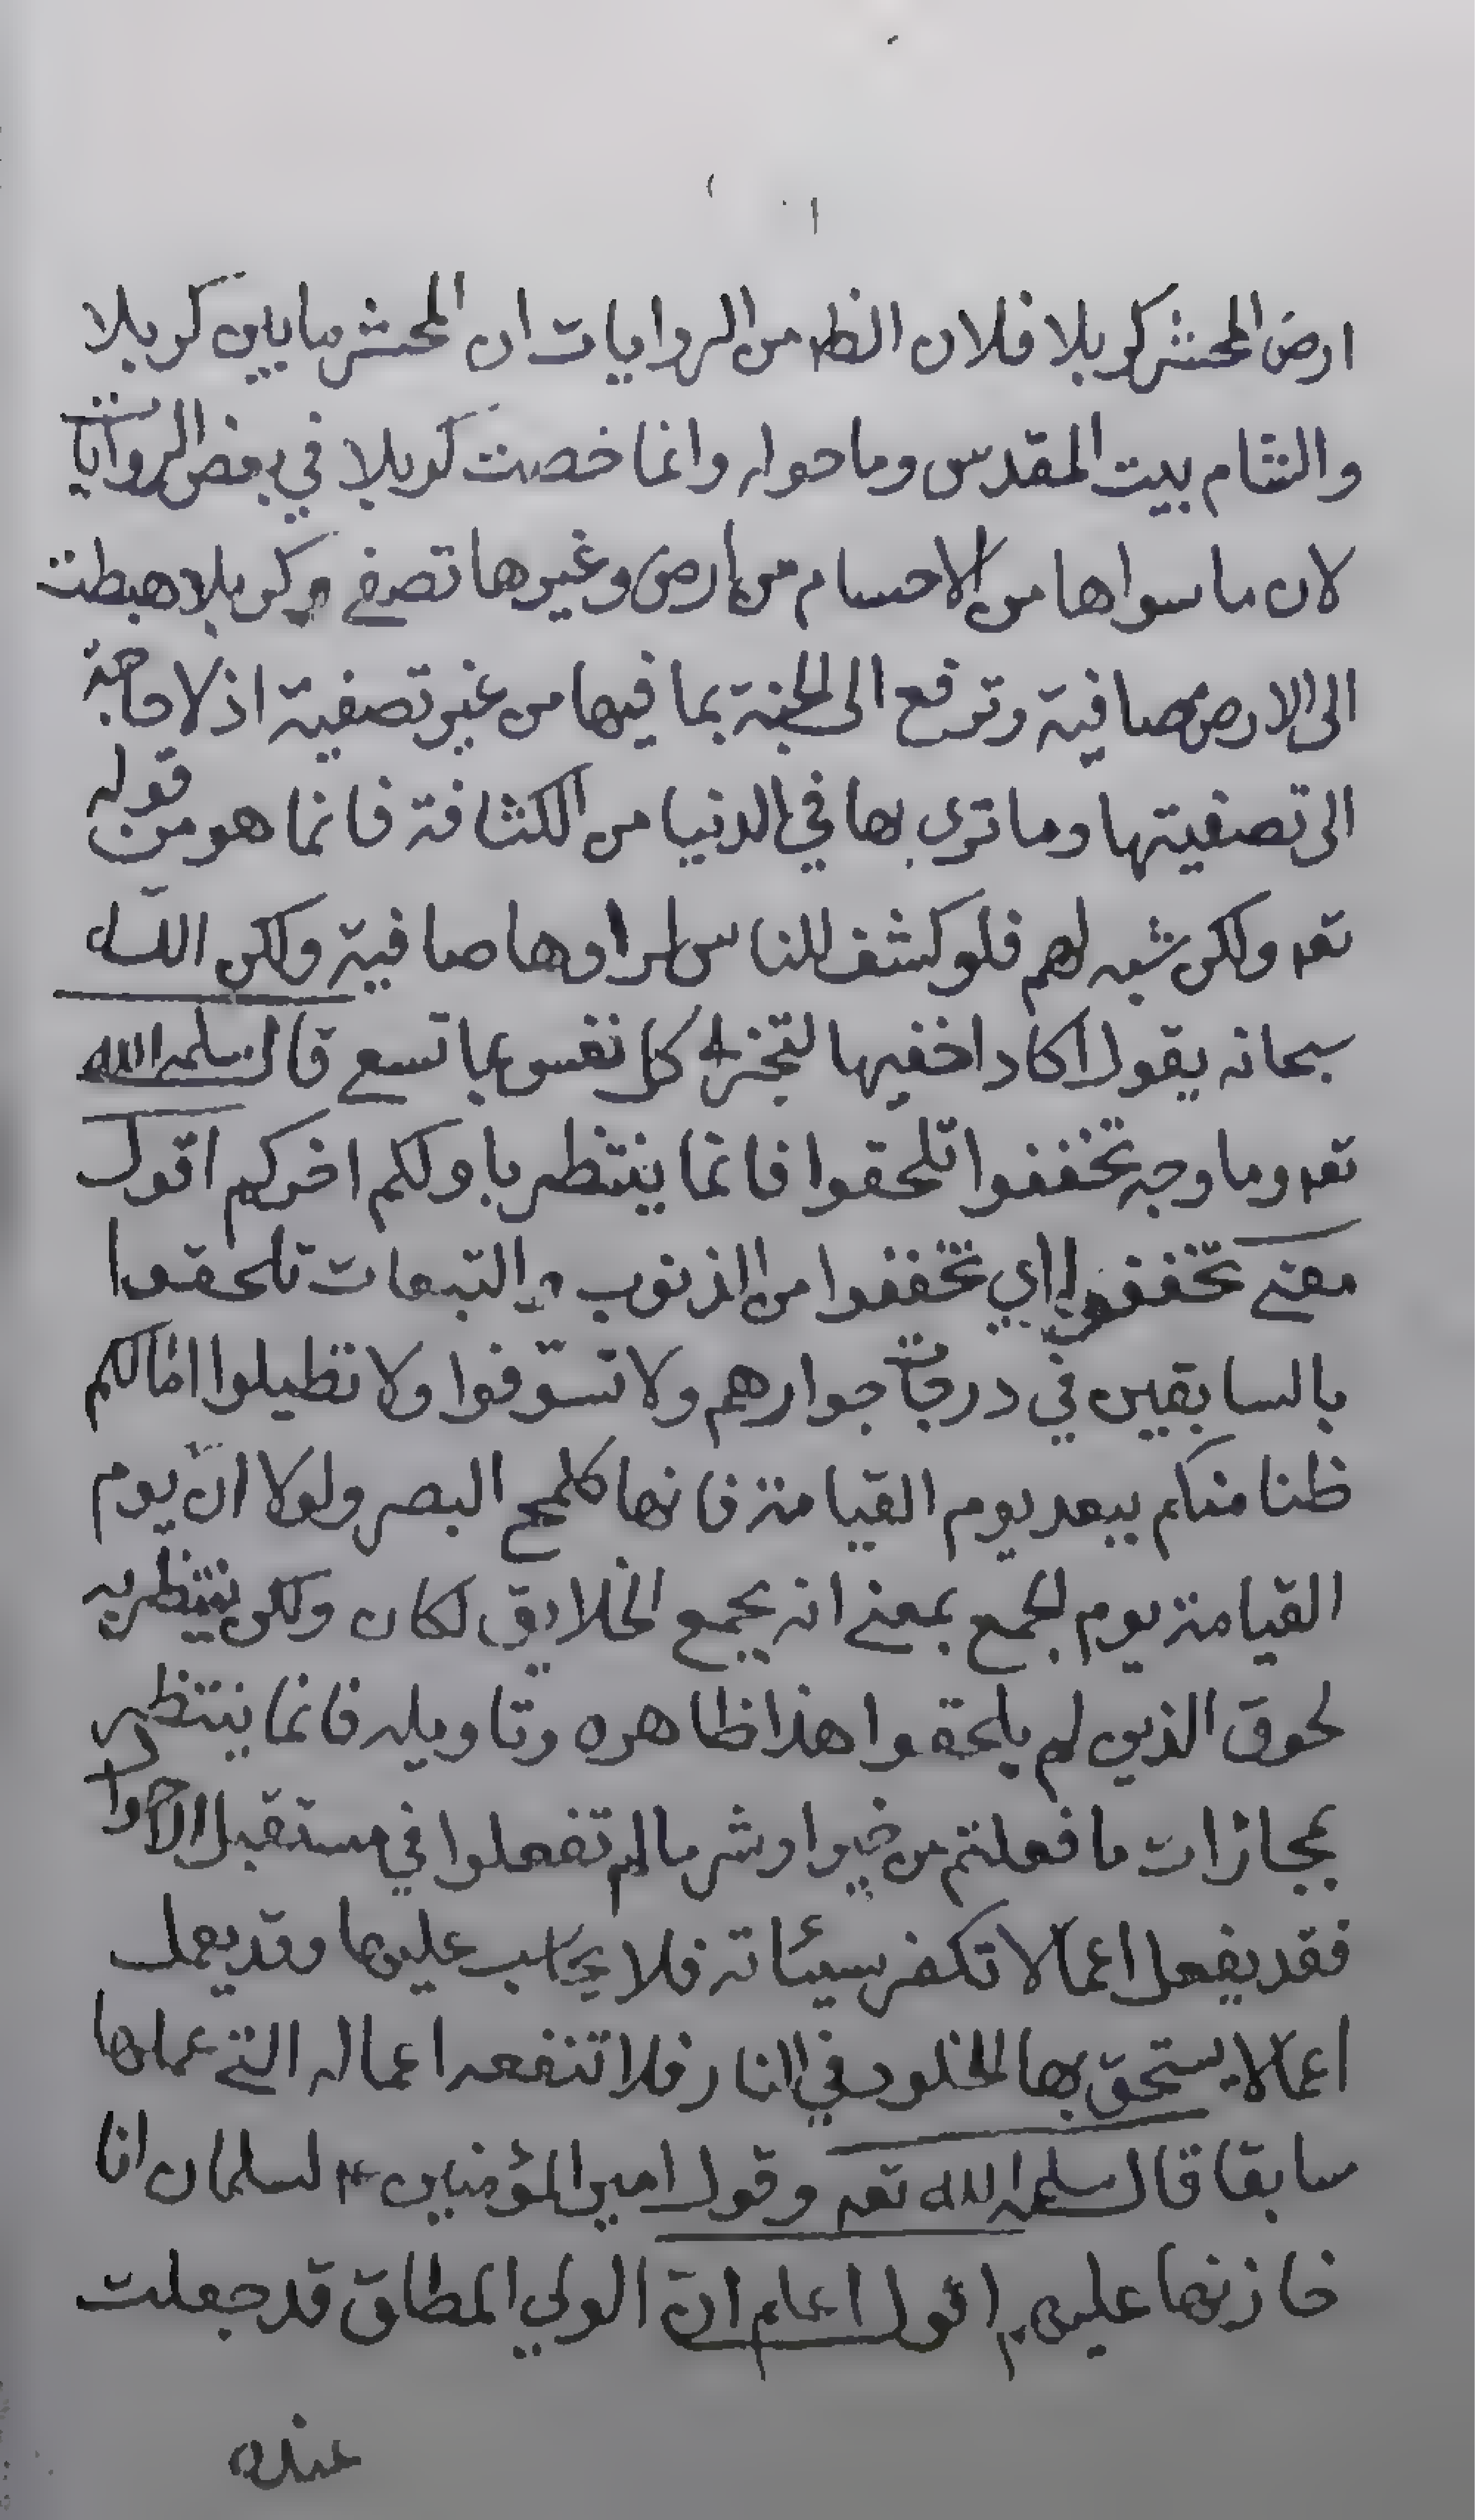 ارض المحشر كربلا فلان الظ من الروايات ان المحشر ما بين كربلا
والشام بيت المقدس وما حوله وانما خصت كربلا في بعض الروايات
لان ما سواها من الاجسام من ارض وغيرها تصفى وكربلا هبطت
الى الارض صافية وترفع الى الجنة بما فيها من غير تصفية اذ لا حاجة
الى تصفيتها وما ترى بها في الدنيا من الكثافة فانما هو من قوله
تعه ولكن شبه لهم فلو كشف للناس لراوها صافية ولكن الله
سبحانه يقول اكاد اخفيها لتجزى كل نفس بما تسعى قال سلمه الله
تعه وما وجه تخففوا تلحقوا فانما ينتظر باولكم اخركم اقول
معنى تخففوا اي تخففوا من الذنوب والتبعات تلحقوا
بالسابقين في درجات جوارهم ولا تسوّفوا ولا تطيلوا امالكم
ظنا منكم ببعد يوم القيامة فانها كلمح البصر ولولا انّ يوم
القيامة يوم الجمع بمعنى انه يجمع الخلايق لكان ولكن ينتظر به
لحوق الذين لم يلحقوا هذا ظاهره وتاويله فانما ينتظر
بمجازات ما فعلتم من خير او شر ما لم تفعلوا في مستقبل الاحوال
فقد يفعل اعمالا تكفر سيئاته فلا يحاسب عليها وقد يعمل
اعمالا يستحق بها الخلود في النار فلا تنفعه اعماله التي عملها
سابقا قال سلمه الله تعه وقول امير المؤمنين ع لسلمان انا
خازنها عليهم اقول اعلم انّ الولي المطلق قد جعلت
عنده